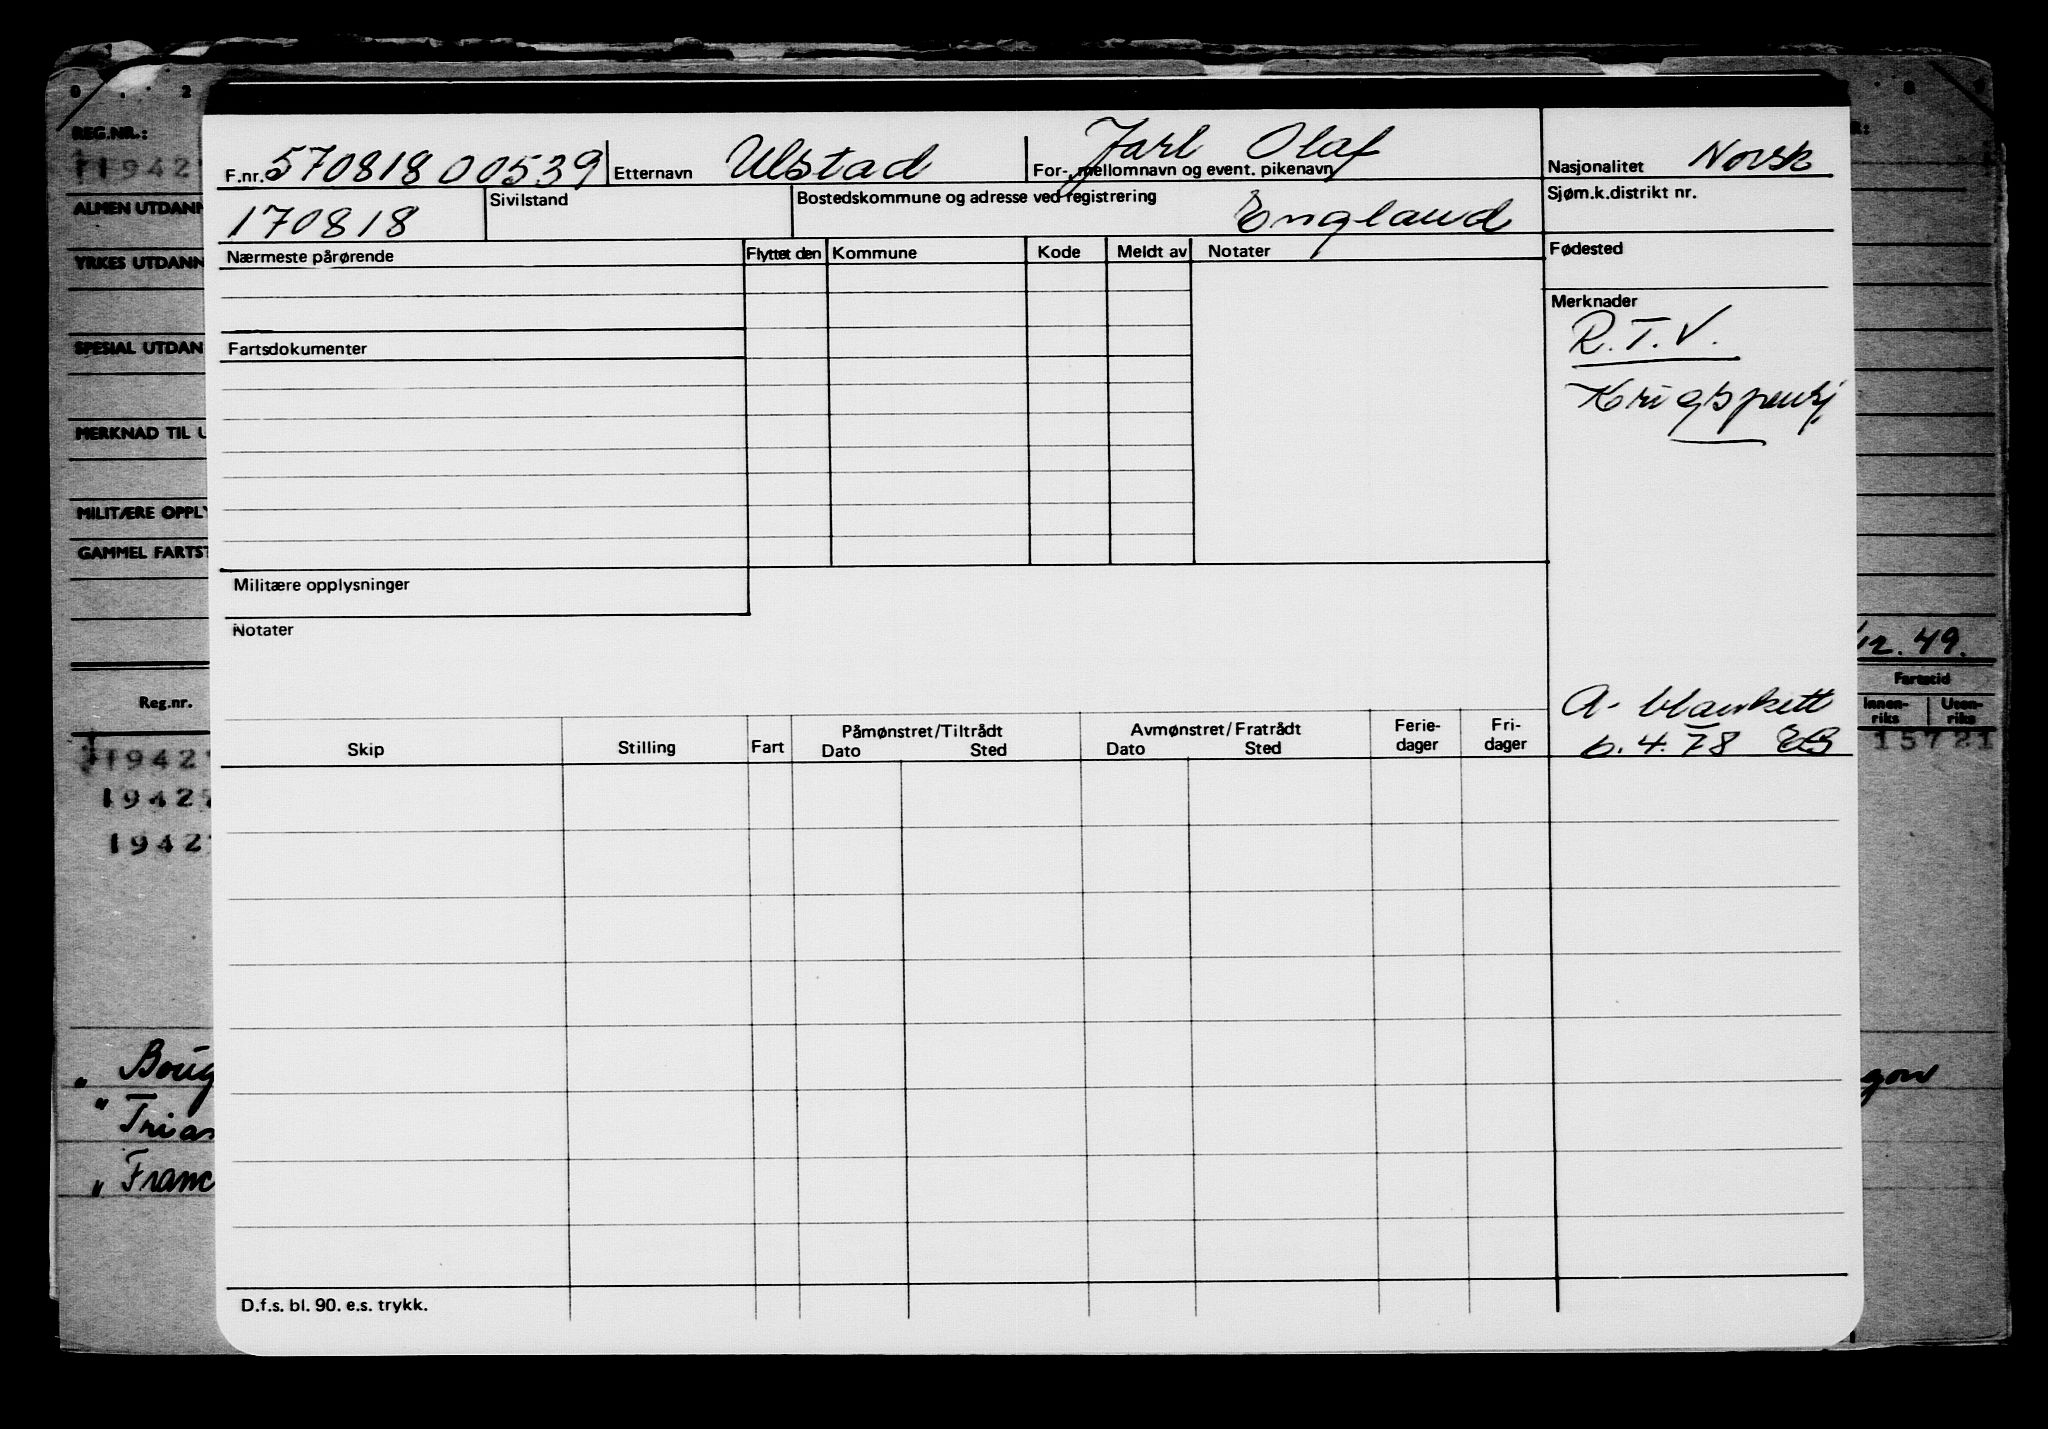 REG.NR.:
19427
ALMEN UTDANN
YRKES UTDANN
SPESIAL UTDAN
MERKNAD TIL U
MILITÆRE OPPLY
GAMMEL FARTST
Reg.nr.
19427
19427
19427
" Boug
" Trian
" Franc
F.nr. 570818 00539 Etternavn Ulstad For-, mellomnavn og event. pikenavn Jarl Olaf Nasjonalitet Norsk
170818 Sivilstand Bostedskommune og adresse ved registrering England Sjøm.k.distrikt nr.
Nærmeste pårørende Flyttet den Kommune Kode Meldt av Notater Fødested
Merknader
R.T.V.
Fartsdokumenter
Krigspensj
Militære opplysninger
Notater
A-blankett
6.4.78 EB
Skip Stilling Fart Påmønstret/Tiltrådt Dato Sted Avmønstret/Fratrådt Dato Sted Ferie-dager Fri-dager
D.f.s. bl. 90. e.s. trykk.
49.
Fartstid
Innen-riks Uten-riks
15721
gow